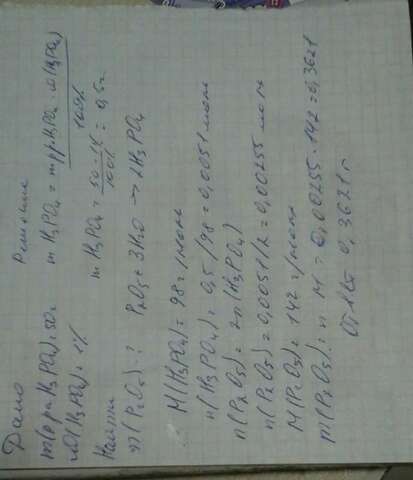 Дано
m(р-ра H3PO4)=50г
ω(H3PO4)=1%
Найти
m(P2O5)-?
Решение
m H3PO4 = mр-р.H3PO4 · ω(H3PO4) / 100%
m H3PO4 = 50·1% / 100% = 0,5г
P2O5 + 3H2O → 2H3PO4
M(H3PO4) = 98 г/моль
n(H3PO4) = 0,5/98 = 0,0051 моль
n(P2O5) = 2n(H3PO4)
n(P2O5) = 0,0051/2 = 0,00255 моль
M(P2O5) = 142 г/моль
m(P2O5) = n · M = 0,00255 · 142 = 0,3621
Ответ 0,3621 г